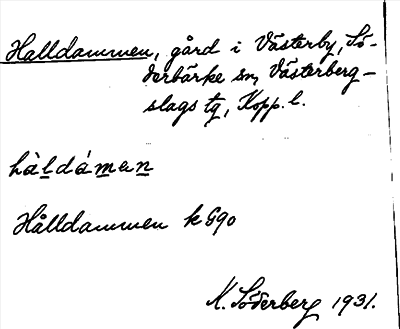 Halldammen, gård i Västerby, Sö-
derbärke sn, Västerberg-
slags tg, Kopp. l.
hàldámen
Hålldammen k G90
K. Söderberg 1931.